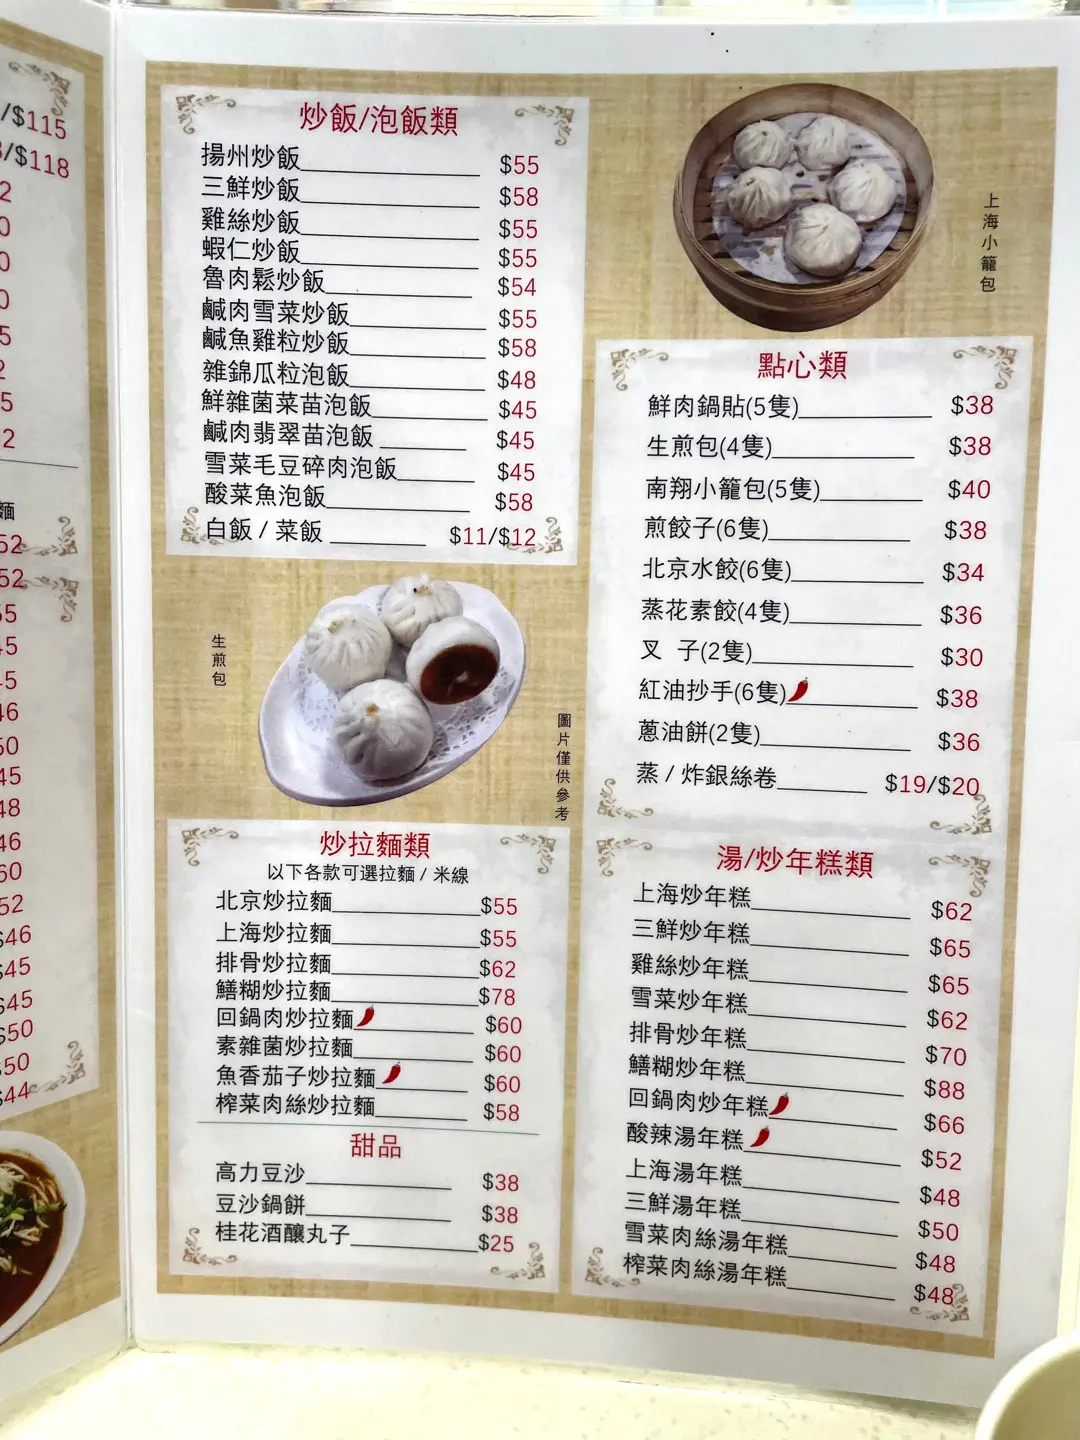 /$115
/$118
麵
$46
$45
$45
$50
$50
$44
炒飯/泡飯類
揚州炒飯 $55
三鮮炒飯 $58
雞絲炒飯 $55
蝦仁炒飯 $55
魯肉鬆炒飯 $54
鹹肉雪菜炒飯 $55
鹹魚雞粒炒飯 $58
雜錦瓜粒泡飯 $48
鮮雜菌菜苗泡飯 $45
鹹肉翡翠苗泡飯 $45
雪菜毛豆碎肉泡飯 $45
酸菜魚泡飯 $58
白飯 / 菜飯 $11/$12
上海小籠包
點心類
鮮肉鍋貼(5隻) $38
生煎包(4隻) $38
南翔小籠包(5隻) $40
煎餃子(6隻) $38
北京水餃(6隻) $34
蒸花素餃(4隻) $36
叉 子(2隻) $30
紅油抄手(6隻) $38
蔥油餅(2隻) $36
蒸 / 炸銀絲卷 $19/$20
生煎包
圖片僅供參考
炒拉麵類
以下各款可選拉麵 / 米線
北京炒拉麵 $55
上海炒拉麵 $55
排骨炒拉麵 $62
鱔糊炒拉麵 $78
回鍋肉炒拉麵 $60
素雜菌炒拉麵 $60
魚香茄子炒拉麵 $60
榨菜肉絲炒拉麵 $58
甜品
高力豆沙 $38
豆沙鍋餅 $38
桂花酒釀丸子 $25
湯/炒年糕類
上海炒年糕 $62
三鮮炒年糕 $65
雞絲炒年糕 $65
雪菜炒年糕 $62
排骨炒年糕 $70
鱔糊炒年糕 $88
回鍋肉炒年糕 $66
酸辣湯年糕 $52
上海湯年糕 $48
三鮮湯年糕 $50
雪菜肉絲湯年糕 $48
榨菜肉絲湯年糕 $48